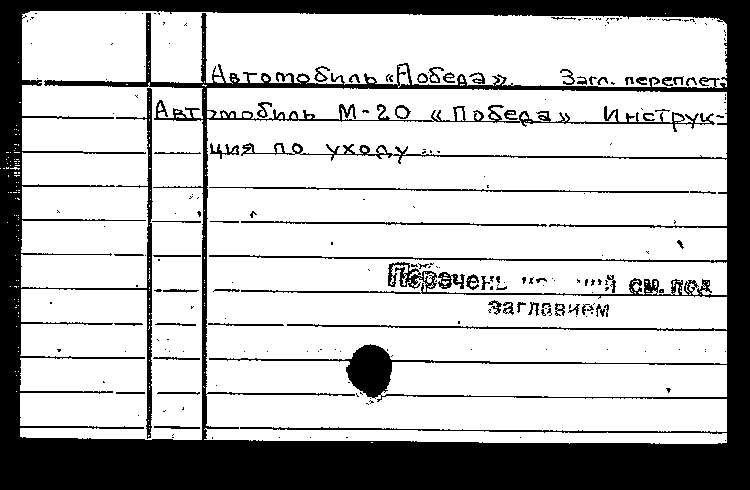 Автомобиль «Победа». Загл. переплета
Автомобиль М-20 «Победа» Инструк-
ция по уходу ...
Перечень см. под
заглавием